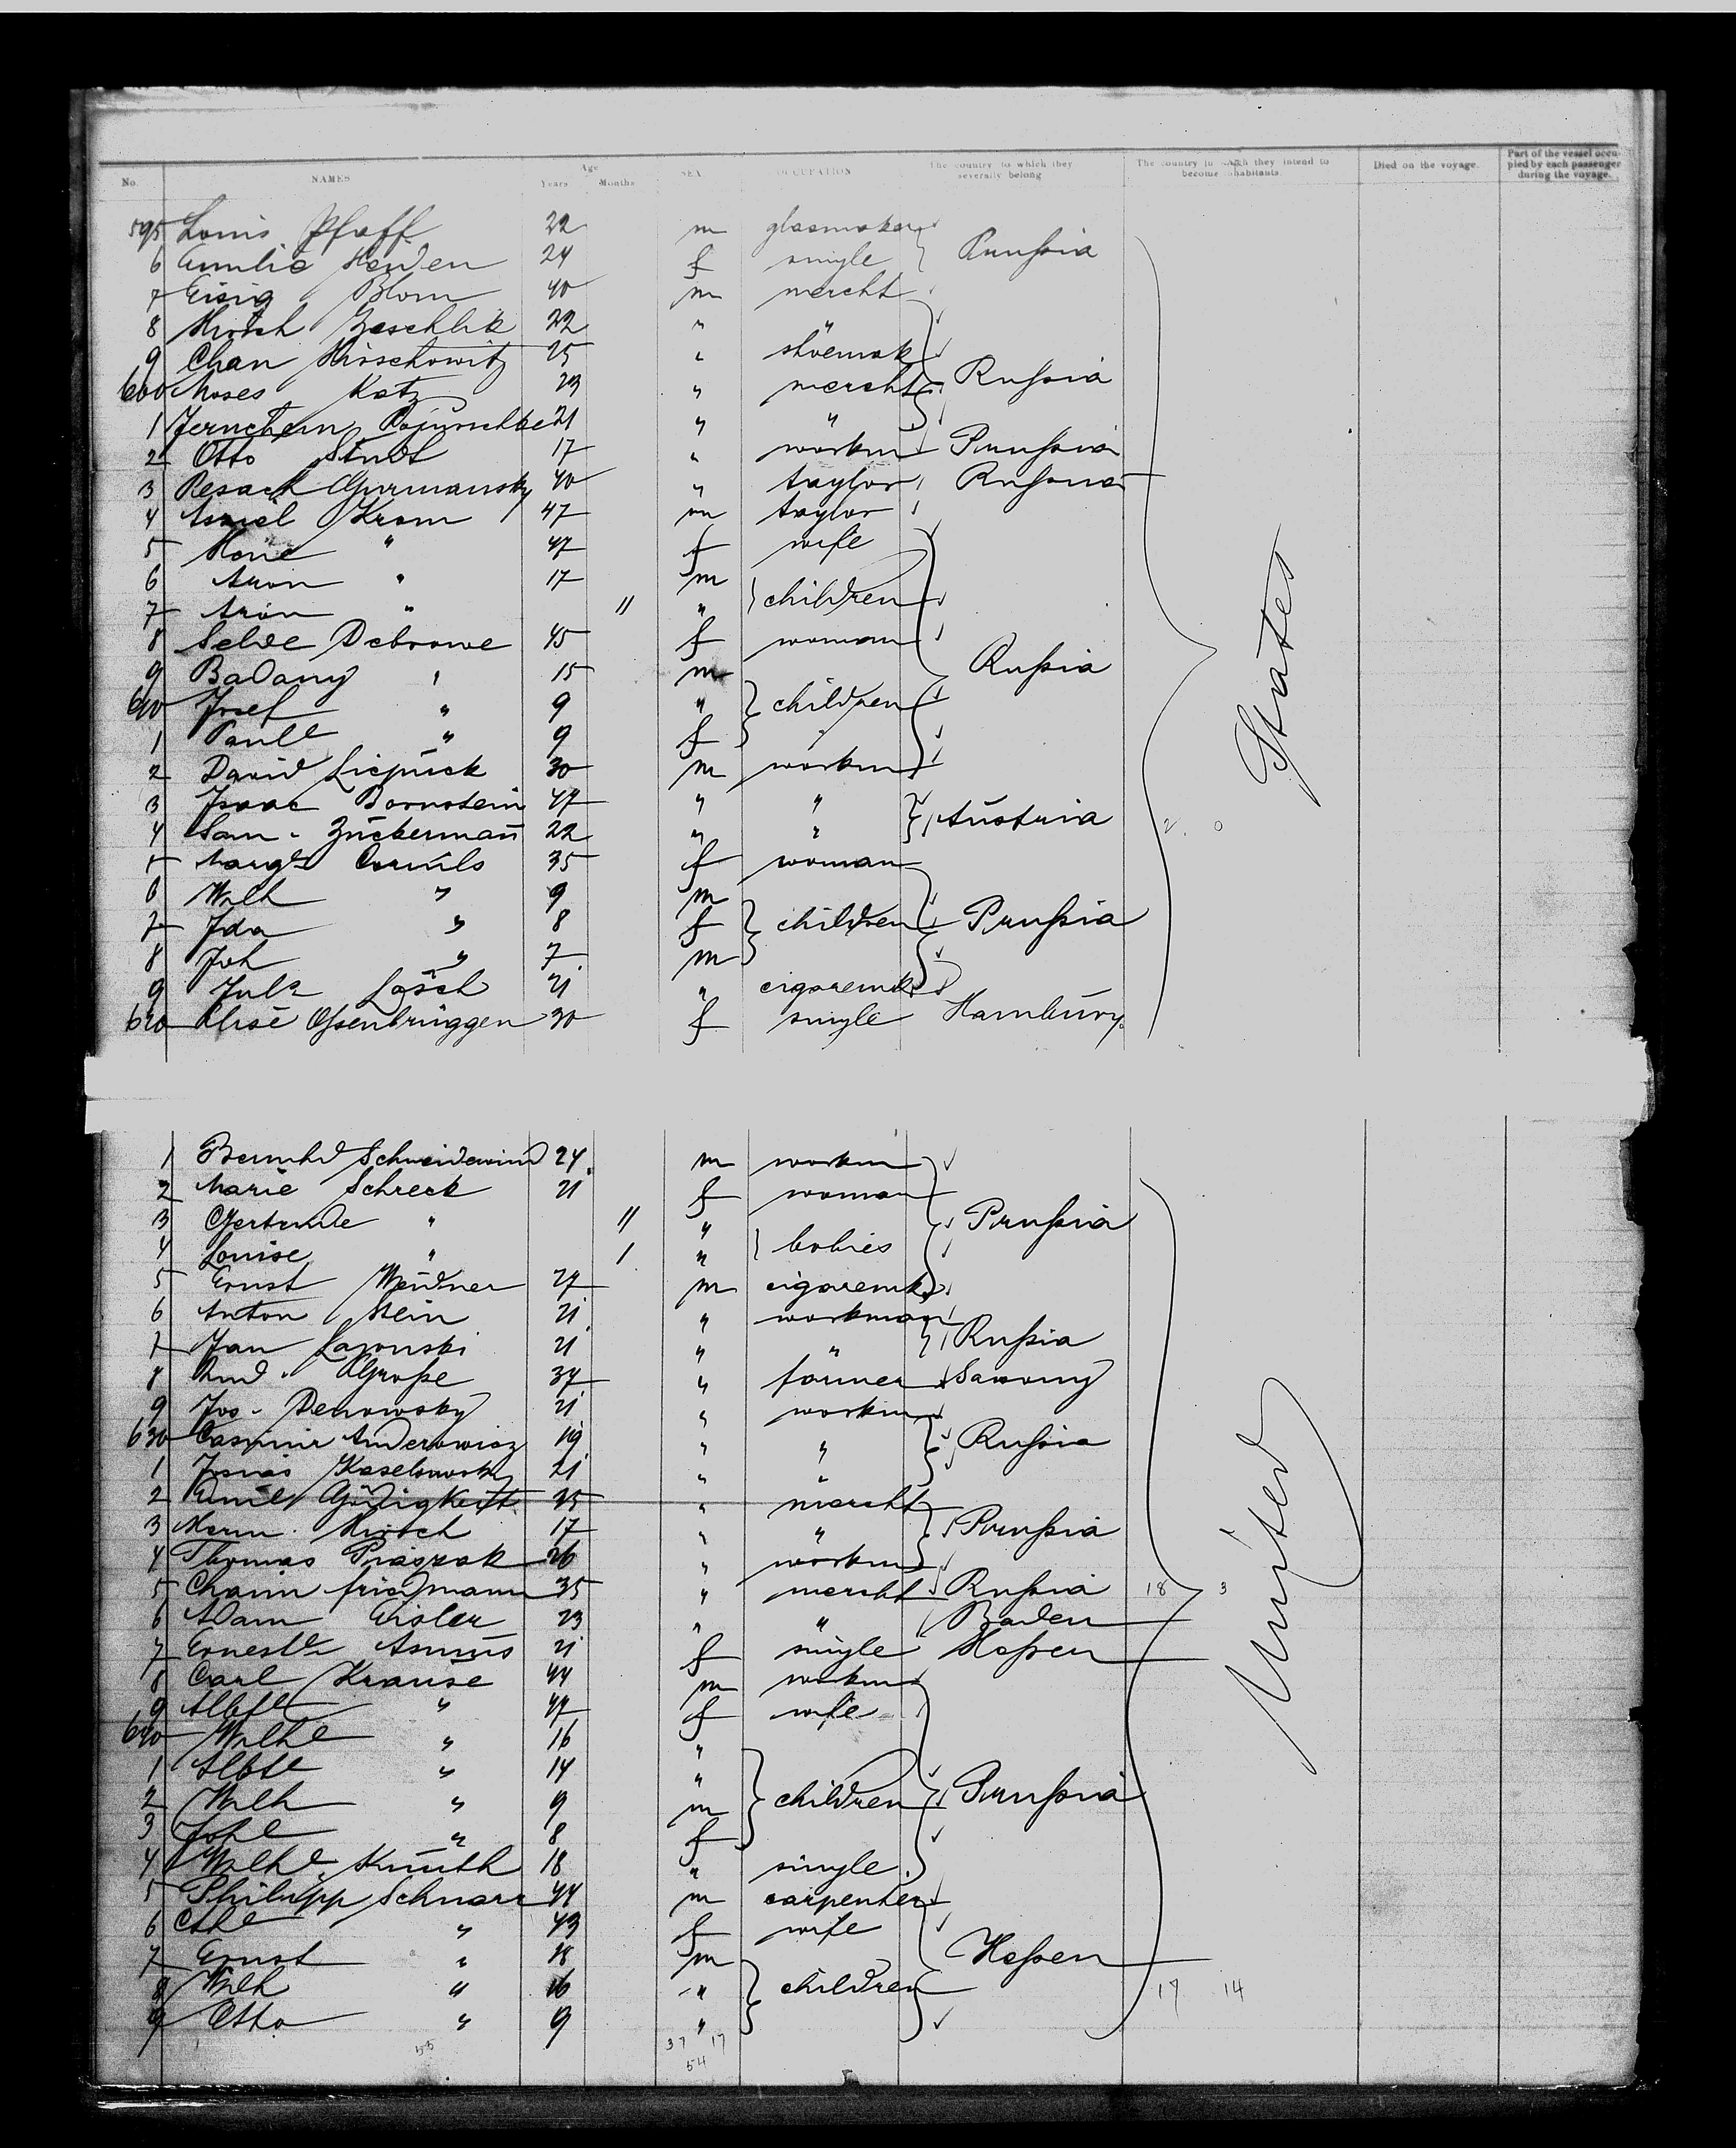 No. NAMES Age Years Months SEX OCCUPATION The country to which they severally belong The country in which they intend to become inhabitants. Died on the voyage. Part of the vessel occupied by each passenger during the voyage.
595 Louis Pfaff 22 m glasmaker
6 Emilie Heyden 24 f single Prußia
7 Eisig Blom 40 m mercht
8 Hirsch Zeschlik 22 " "
9 Chan Hirschowitz 25 " shoemak
600 Moses Katz 23 " mercht Rußia
1 21 " "
2 Otto Studt 17 " workm Prußia
3 Resach Germansky 40 " taylor Rußia
4 Asriel Krom 47 m taylor
5 " 47 f wife
6 Aron " 17 m
7 Aron " 11 " children
8 Selde Debrowe 45 f woman
9 Badany " 15 m Rußia
610 Josef " 9 " children
1 Paule " 9 f
2 David 30 m workm
3 Isaac Bornstein 47 " "
4 Sam. Zuckerman 22 " " Austria
5 Margte Cornils 35 f woman
6 Wilh " 9 m
7 Ida " 8 f children Prußia
8 Joh " 7 m
9 Juls Lösch 21 " cigaremk
620 Elise Oßenbrüggen 30 f single Hamburg
1 Bernhd Schneidewind 24 m workm
2 Marie Schreck 21 f woman
3 Gertrude " 11 " Prußia
4 Louise " 1 " babies
5 Ernst Weidner 27 m cigaremk
6 Anton Stein 21 " workman
7 Jan Lazonski 21 " " Rußia
8 Große 37 " farmer Saxony
9 Jos. Denowsky 21 " workm
630 Casimir Anderowicz 19 " " Rußia
1 21 " "
2 Emil Gödigkeit 25 " mercht
3 Herm. Hirsch 17 " " Prußia
4 Thomas Piaszak 26 " workm
5 Chaim fridmann 35 " mercht Rußia 18 3
6 Adam Eisler 23 " " Baden
7 Ernestle Asmus 21 f single Heßen
8 Carl Krause 44 m workm
9 " 47 f wife
640 Wilhe " 16 "
1 " 14 "
2 Wilh " 9 m children Prußia
3 " 8 f
4 Wilhe Knuth 18 " single
5 Philipp Schnarr 44 m carpenter
6 " 43 f wife
7 Ernst " 18 m Heßen
8 Wilh " 16 " children 17 14
9 Otto " 9 "
55 37 17
54
United States